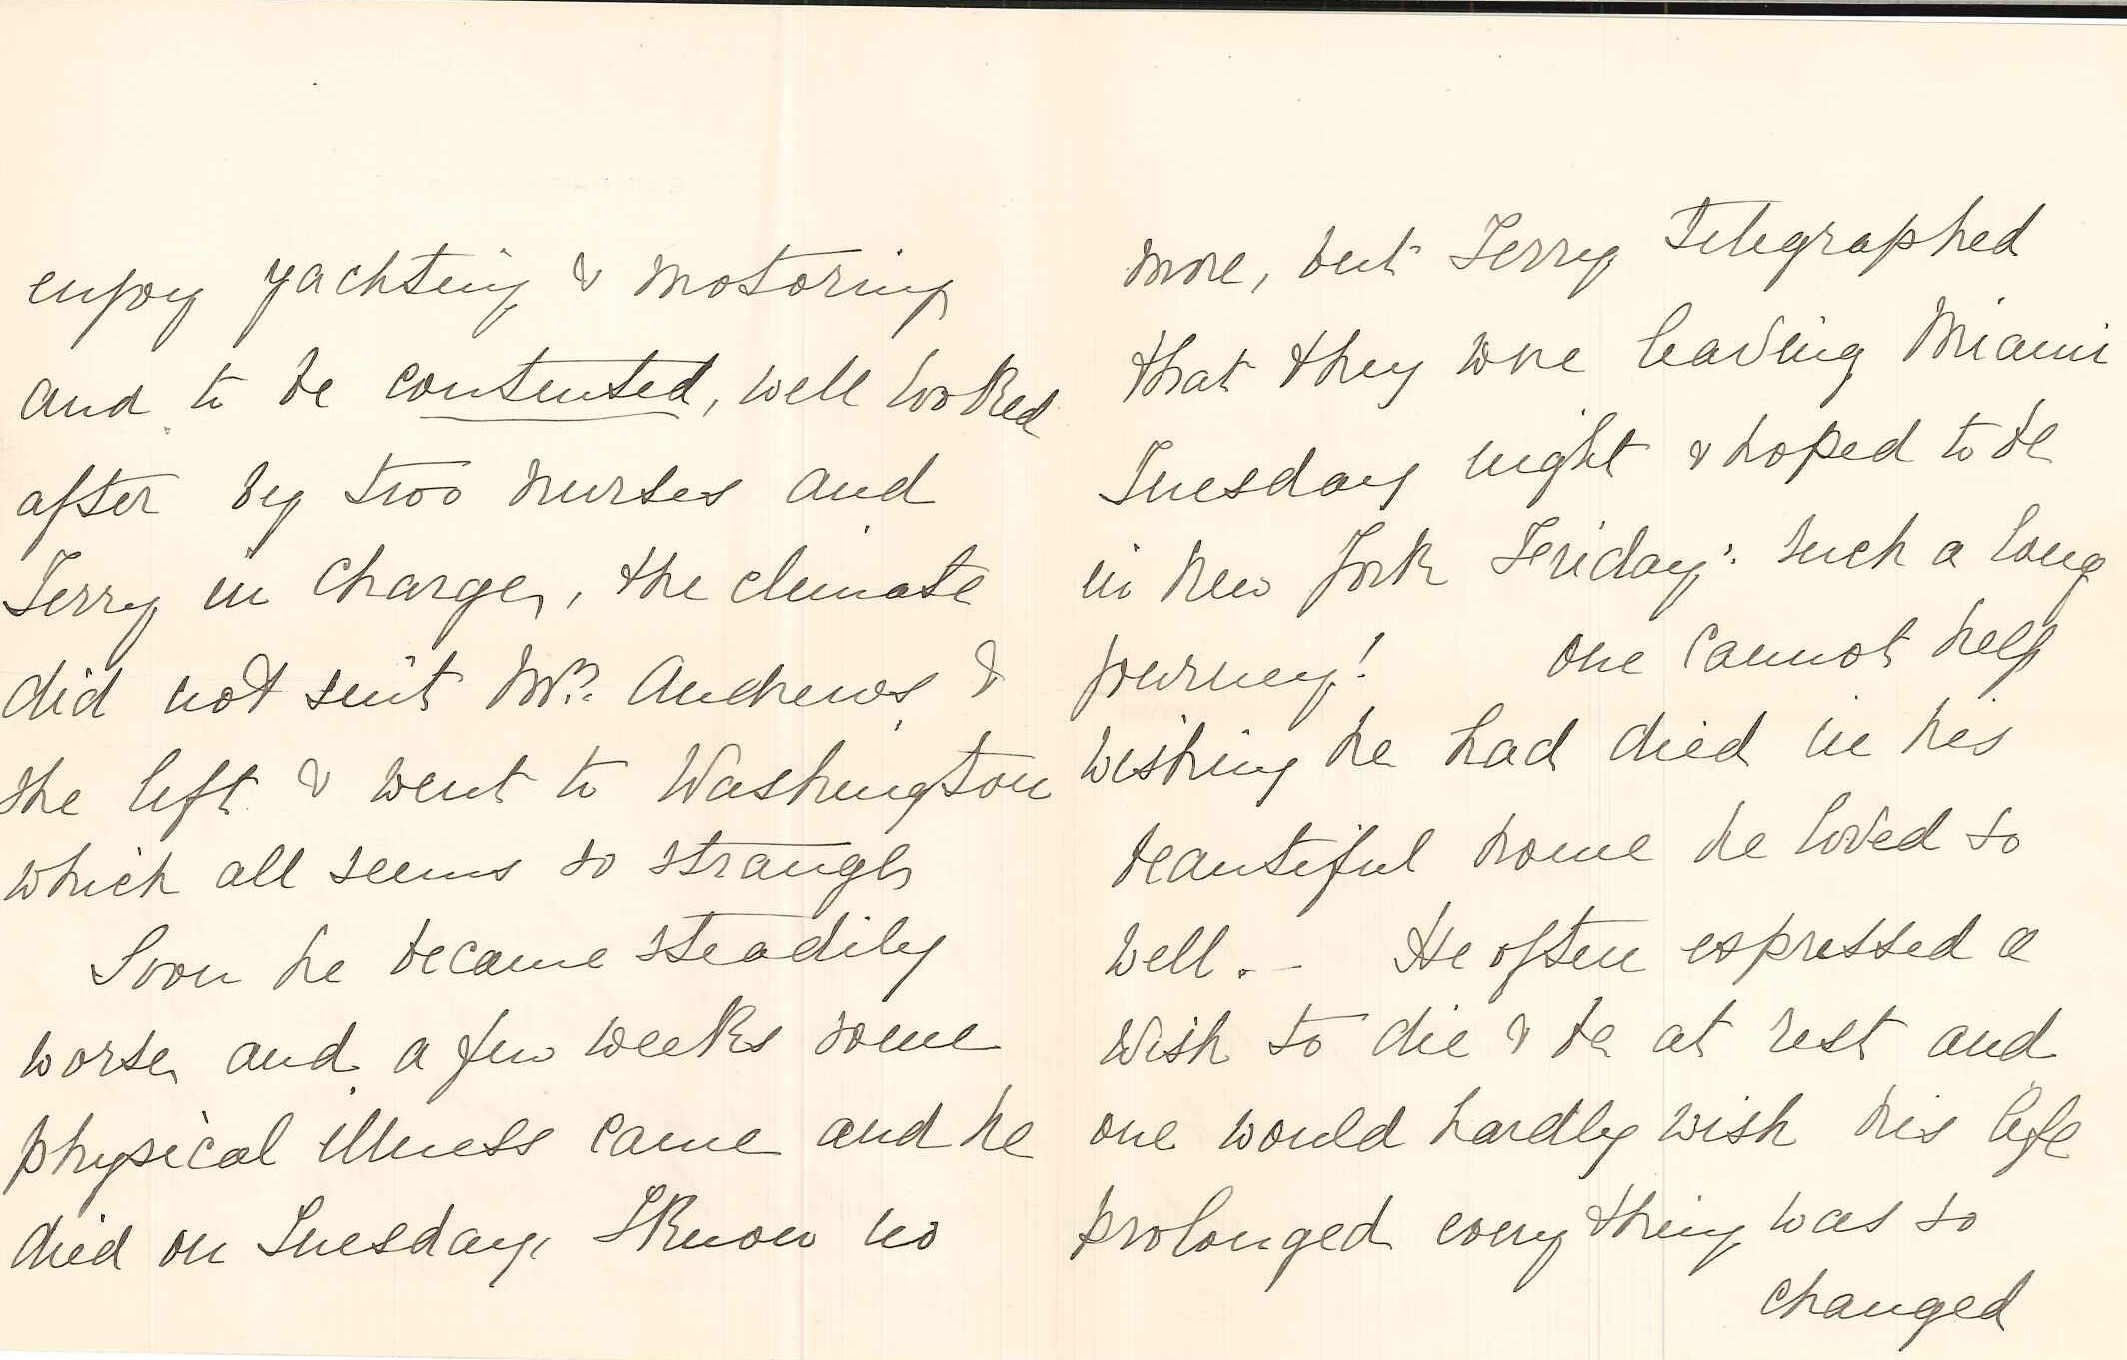 enjoy yachting & motoring
and to be contented, well looked
after by two nurses and
Terry in charge, the climate
did not suit Mrs. Andrews &
she left & went to Washington
which all seems so strange,
Soon he became steadily
worse, and a few weeks some
physical illness came and he
died on Tuesday, I know no
more, but Terry Telegraphed
that they were leaving Miami
Tuesday night & hoped to be
in New York Friday: such a long
journey! One cannot help
wishing he had died in his
beautiful home he loved so
well. - He often expressed a
wish to die & be at rest and
one would hardly wish his life
prolonged every thing was so
changed